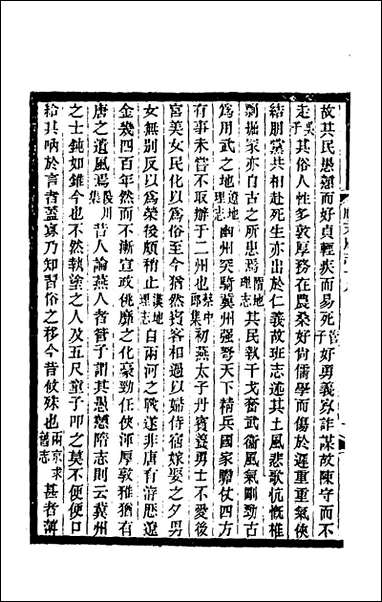 故其民愚戇而好貞輕疾而易死管子好勇義寡詐謀故陳守而不
走吳子其俗人性多敦厚務在農桑好尚儒學而傷於遲重重氣俠
結朋黨共相赴死生亦出於仁義故班志述其土風悲歌忼慨椎
剽掘冢亦自古之所患焉隋地理志其民執干戈奮武衞風氣剛勁古
爲用武之地遼地理志幽州突騎冀州强弩天下精兵國家贍仗四方
有事未嘗不取辦于二州也蔡中郎集初燕太子丹賓養勇士不愛後
宮美女民化以爲俗至今猶然賓客相過以婦侍宿嫁娶之夕男
女無别反以爲榮後頗稍止漢地理志自兩河之戰遂非唐有淪懕遼
金幾四百年然而不漸宣政佻靡之化豪勁任俠渾厚敦雅猶有
唐之遺風焉陵川集昔人論燕人者管子謂其愚戇隋志則云冀州
之士鈍如錐今也不然執塗之人及五尺童子叩之莫不便便口
給其吶於言者蓋𭕒乃知習俗之移今昔攸殊也兩京求舊志甚者薄